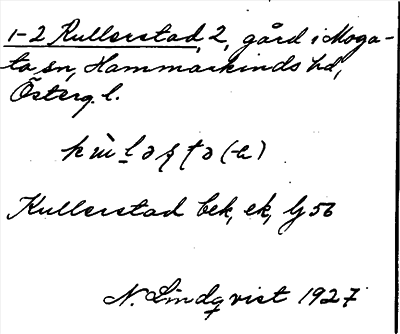 1-2 Rullerstad, 2, gård i Moga-
ta sn, Hammarkinds hd,
Österg. l.
Kullerstad bek, ek, lj 56
N. Lindqvist 1927